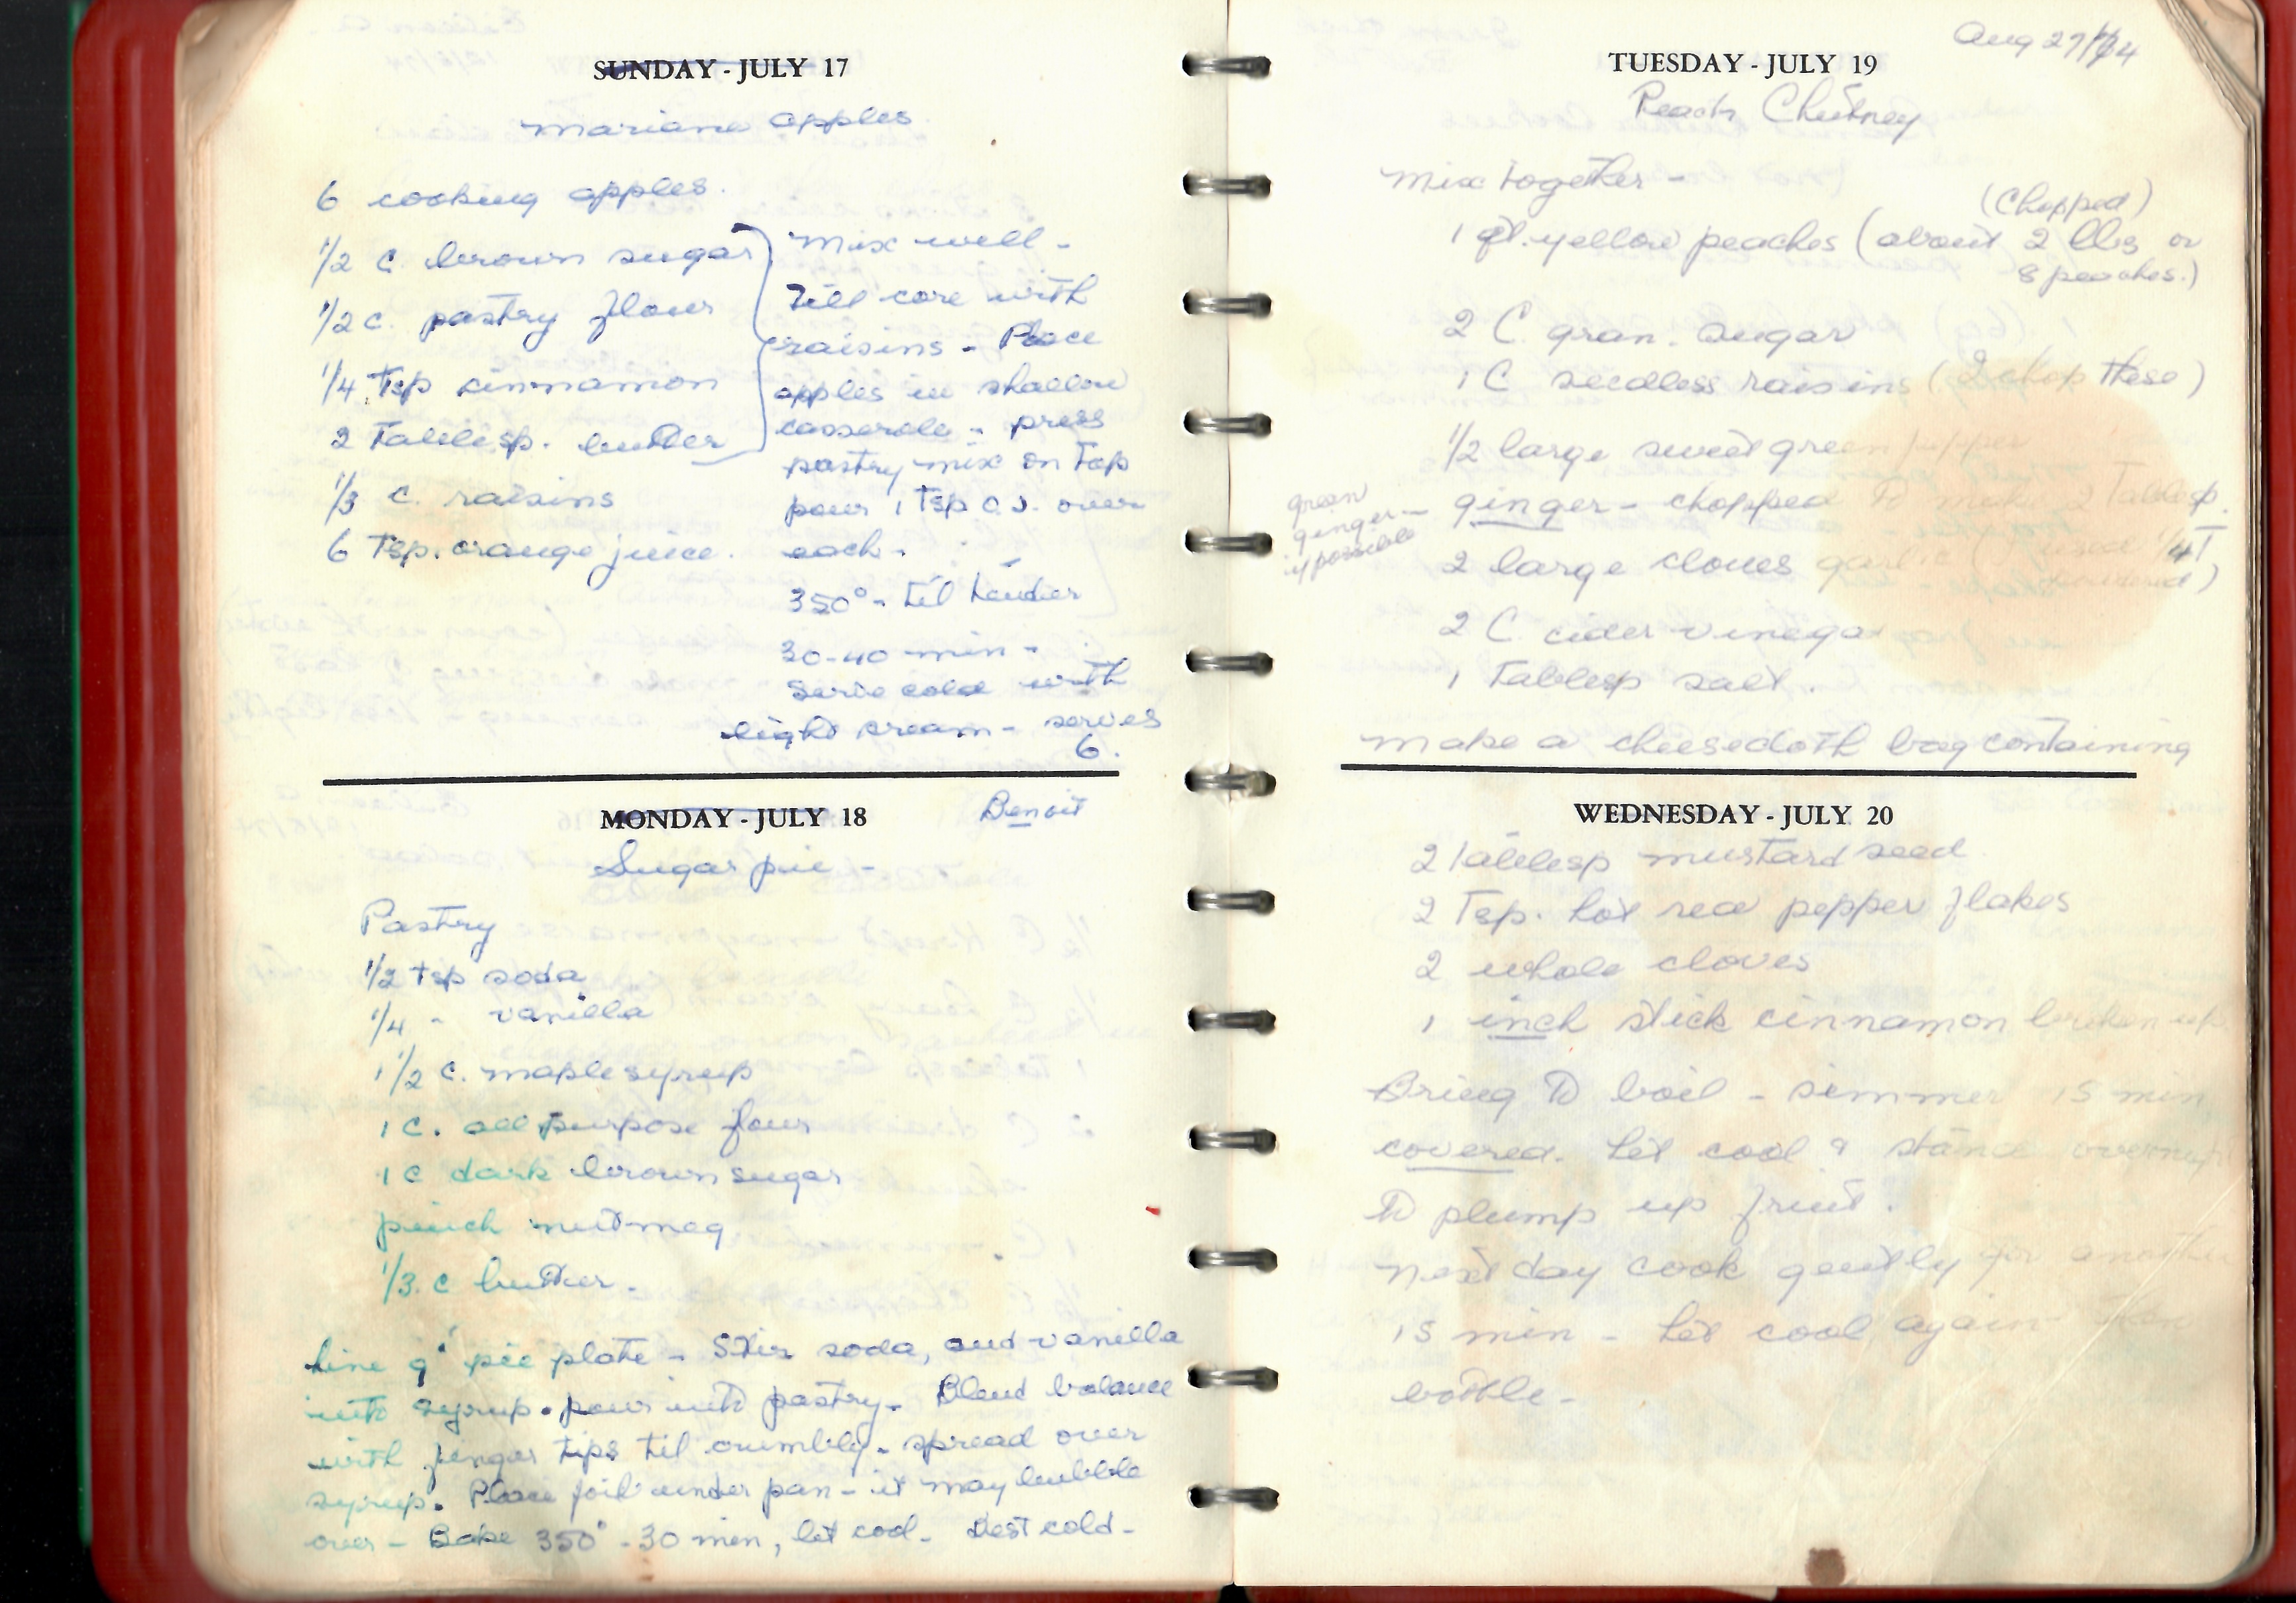 SUNDAY - JULY 17
Mariane apples
6 cooking apples.
1/2 C. brown sugar
1/2 c. pastry flour
1/4 Tsp cinnamon
2 Tablesp. butter
1/3 C. raisins
6 Tsp. orange juice.
Mix well -
Fill core with
raisins - Place
apples in shallow
casserole - press
pastry mix on top
pour 1 Tsp O.J. over
each -
350° - til tender
30-40 min -
Serve cold with
light cream - serves
6.
MONDAY - JULY 18
Benoit
Sugar pie -
Pastry
1/2 tsp soda
1/4 - vanilla
1 1/2 c. maple syrup
1 C. all purpose flour
1 c dark brown sugar
pinch nutmeg
1/3 c butter.
Line 9" pie plate - Stir soda, and vanilla
into syrup. pour into pastry - Blend balance
with finger tips til crumbly - spread over
syrup. Place foil under pan - it may bubble
over - Bake 350° - 30 min, let cool - Best cold -
Aug 27/74
TUESDAY - JULY 19
Peach Chutney
Mix together -
(Chopped)
1 qt. yellow peaches (about 2 lbs or
8 peaches.)
2 C. gran. sugar
1 C seedless raisins (I chop these)
1/2 large sweet green pepper
green
ginger -
if possible
ginger - chopped to make 2 Tablesp.
2 large cloves garlic (I used 1/4 T
powdered)
2 C. cider vinegar
1 Tablesp salt.
Make a cheesecloth bag containing
WEDNESDAY - JULY 20
2 Tablesp mustard seed
2 Tsp. hot red pepper flakes
2 whole cloves
1 inch stick cinnamon broken up
Bring to boil - simmer 15 min
covered. Let cool & stand overnight
to plump up fruit.
Next day cook gently for another
15 min - Let cool again then
bottle -